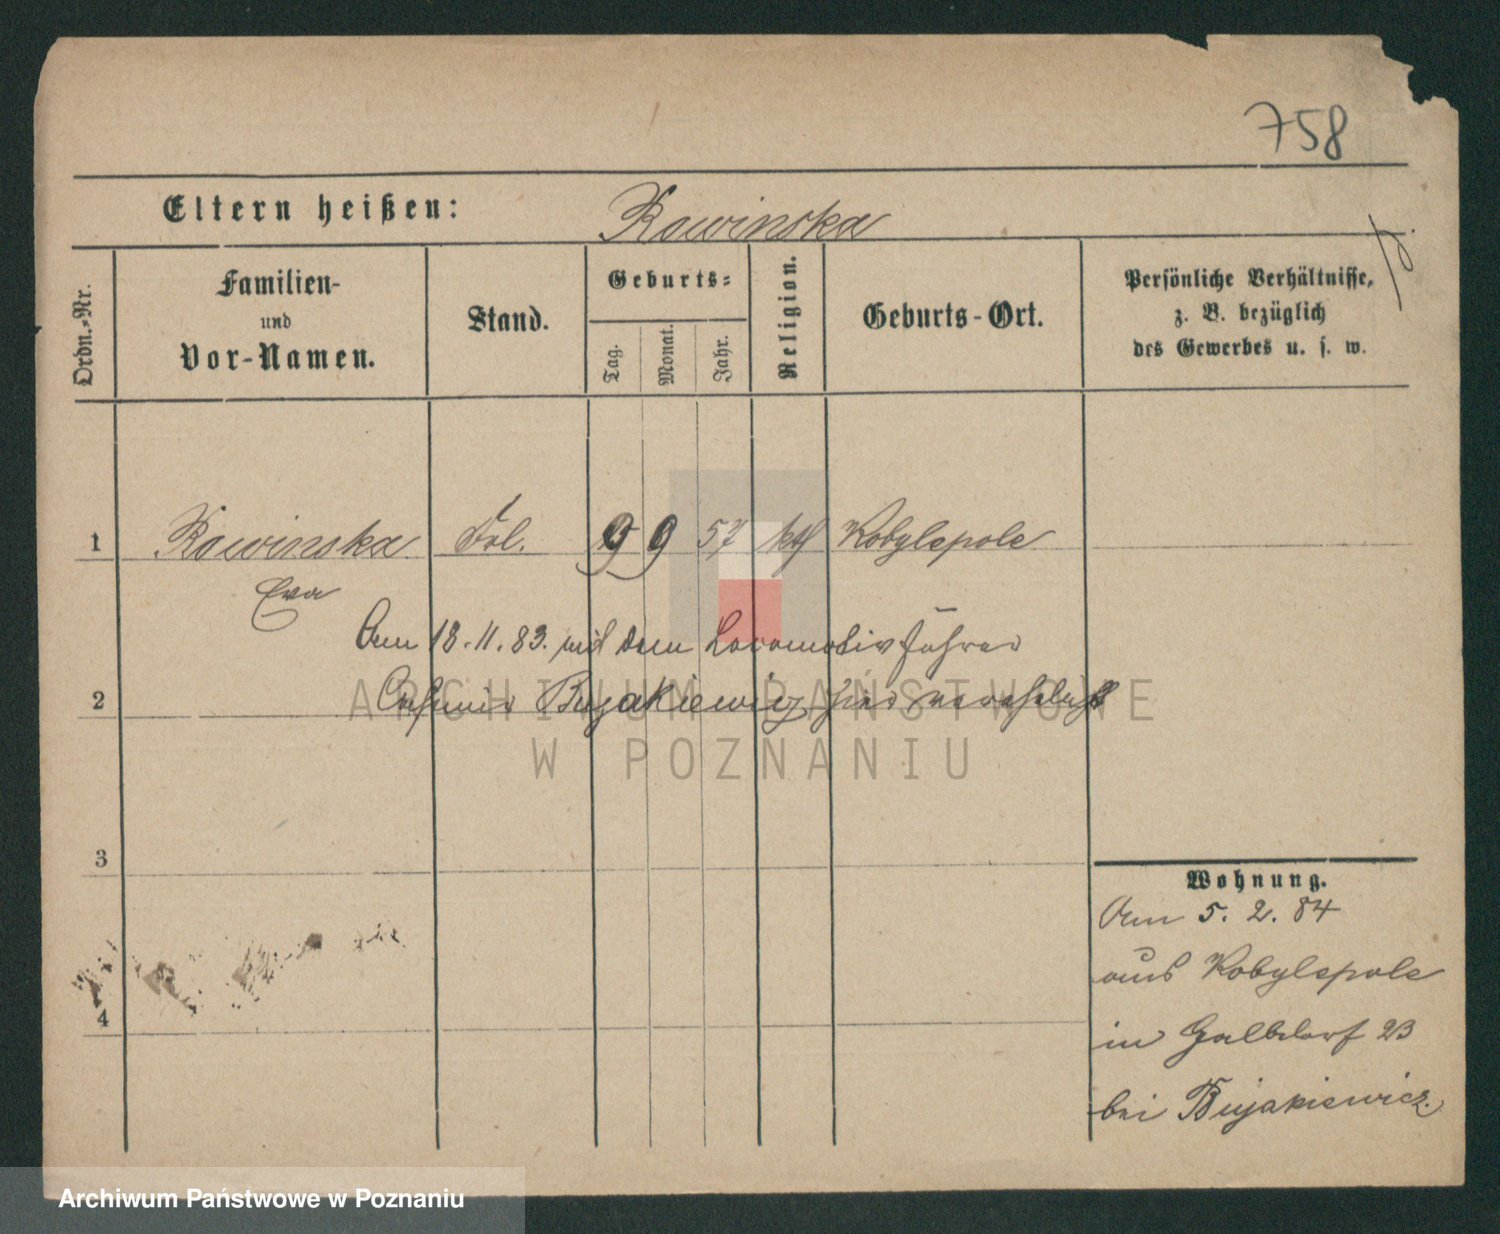 758
Eltern heißen: Rowinska
Ordn.-Nr.
Familien-
und
Vor-Namen.
Stand.
Geburts-
Tag.
Monat.
Jahr.
Religion.
Geburts-Ort.
Persönliche Verhältnisse,
z. B. bezüglich
des Gewerbes u. s. w.
1 Rowinska Frl. 9 9 57 kth Kobylepole
Eva
Am 18.11.83. mit dem Locomotivführer
2 Casimir Bujakiewicz hier verehelicht
ARCHIWUM PAŃSTWOWE
W POZNANIU
3
Wohnung.
Am 5. 2. 84
aus Kobylepole
4
in Halbdorf 23
bei Bujakiewicz.
Archiwum Państwowe w Poznaniu